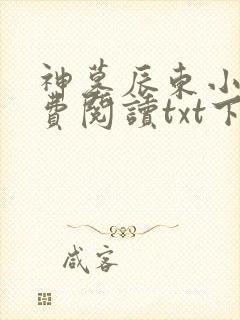 神墓辰東小
費閱讀txt下
咸客